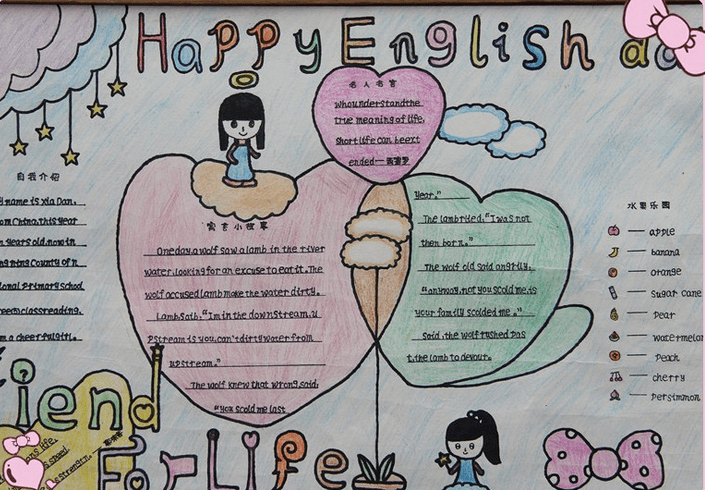 Happy English
名人名言
whounderstandthe
true meaning of life,
short life can beext
ended—
自我介绍
y name is Xia Dan.
om China.this year
n years old.now in
County of n
ional primary school
class reading.
m a cheerful girl.
寓言小故事
Oneday,a wolf saw a lamb in the river
water.looking for an excuse to eat it. The
wolf accused lamb make the water dirty.
Lamb saib."Im in the downstream.u
Pstream is you.can't dirty water from
upstream."
The wolf knew that wrong.said:
"you scold me last
year."
The lamb ried."I was not
then born."
The wolf old said angrily.
"anyway.not you scold me.is
your family scolded me."
Said.the wolf rushed pas
t.the lamb to devour.
水果乐园
apple
banana
orange
Sugar cane
Pear
watermelon
Peach
cherry
Persimmon
iend
For Life